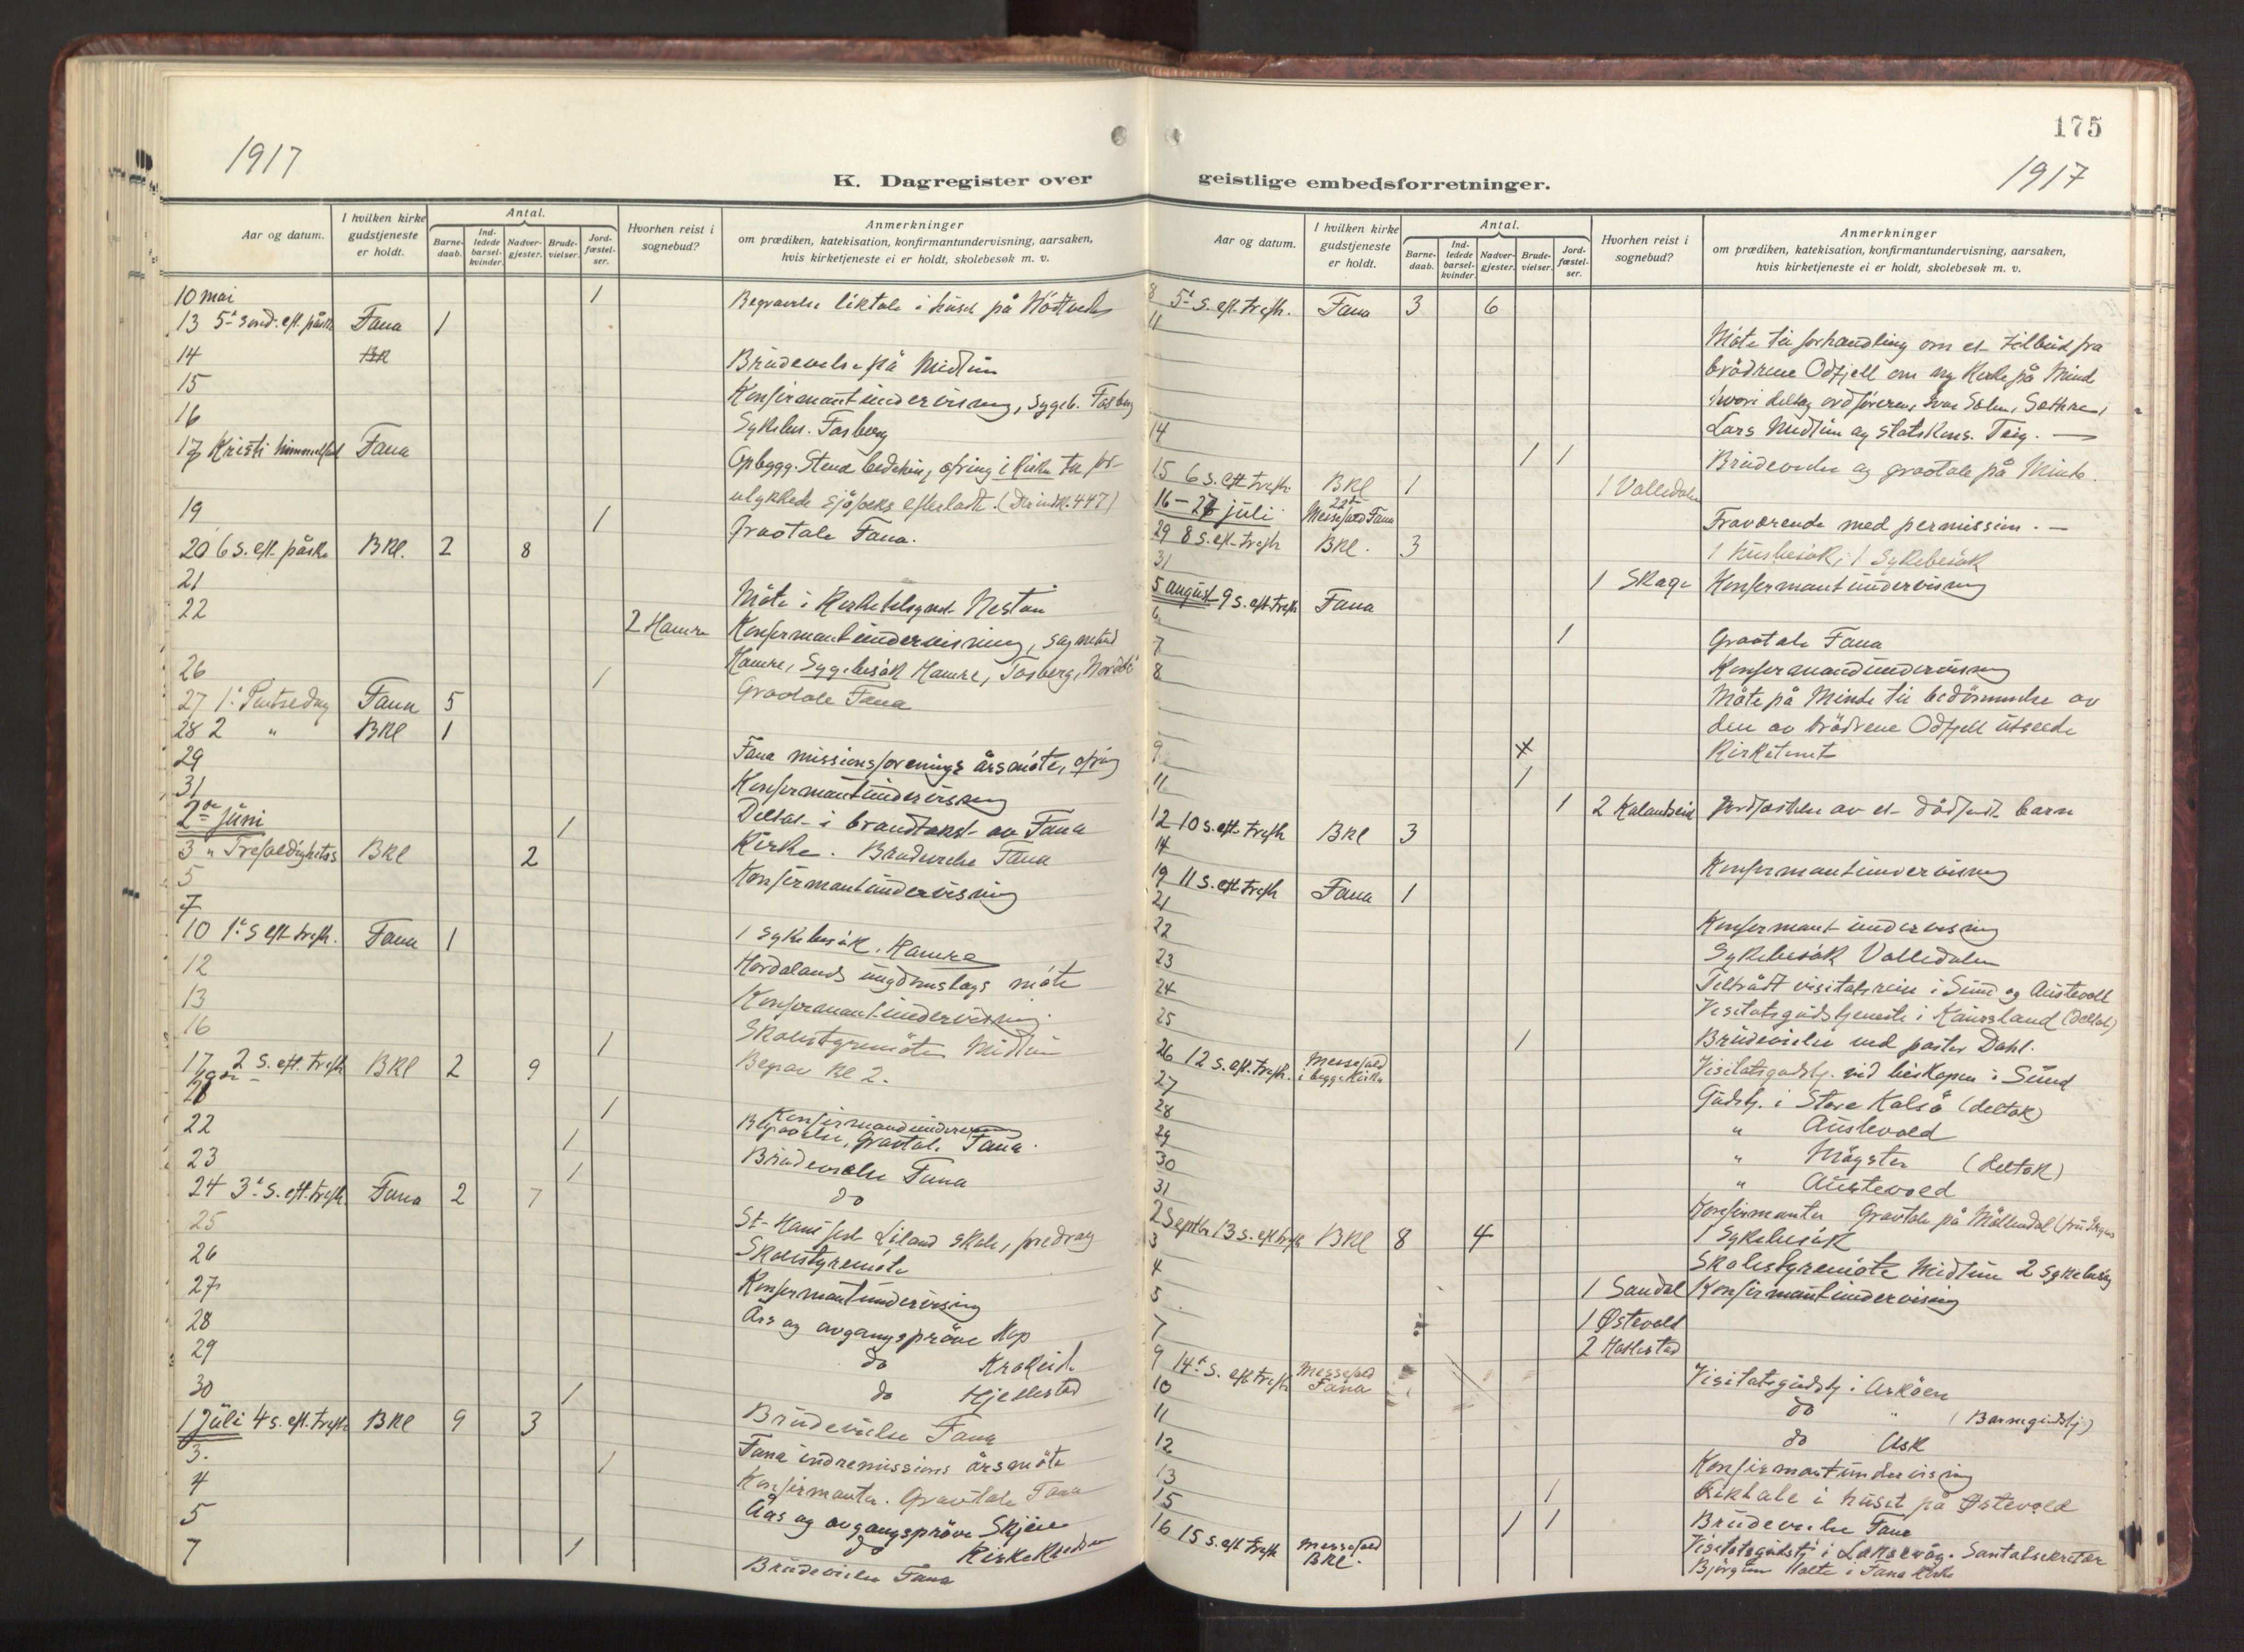 1917
K. Dagregister over
Aar og datum.
I hvilken kirke gudstjeneste er holdt.
Antal.
Barne-daab.
Ind-ledede barsel-kvinder.
Nadver-gjester.
Brude-vielser.
Jord-fæstel-ser.
Hvorhen reist i sognebud?
Anmerkninger
om prædiken, katekisation, konfirmantundervisning, aarsaken,
hvis kirketjeneste ei er holdt, skolebesøk m. v.
10 mai 1 Begravelse liktale i huset på
13 5te sønd. eft. påske Fana 1
14 BKl Brudevielse på Midtun
15 Konfirmantundervisning, Sygeb. Fosberg
16 Sykebes. Fosberg
17 Kristi himmelfart Fana
Opbygg. Stend bedehus, ofring i kirke for for-
ulykkede sjøfolks efterladte.
19 1 Gravtale Fana.
20 6 s. eft. påske BKl. 2 8
21 Møte i Nestun
22 2 Hamre Konfirmantundervisning,
Hamre, Sygebesøk Hamre, Fosberg,
26 1 Gravtale Fana
27 1. Pintsedag Fana 5
28 2 " BKl 1
29 Fana missionsforenings årsmøte, ofring
31 Konfirmantundervisning
2 juni 1 Deltat i brandtakst av Fana
Kirke. Brudevielse Fana
3 " Trefoldighetss BKl 2
5 Konfirmantundervisning
7
10 1ste s eft trefh. Fana 1 1 Sykebesøk. Hamre
12 Hordalands ungdomslags møte
13 Konfirmantundervisning
16 1 Skolestyremøte Midtun
17 2 s. eft. trefh BKl 2 9 Begrav Kl 2.
Konfirmandunderv
1 Begravelse, Gravtal. Fana.
22 1
23 1 Brudevielse Fana
24 3d. s. eft. trefh Fana 2 7 do
25 St-Hansfest Liland skole, foredrag
26 Skolestyremöte
27 Konfirmantundervisning
28 Års og avgangsprøve Hop
29 do Krokeid
30 1 do Hjellestad
1 Juli 4 s. eft. trefh BKl 9 3 Brudevielse Fana
3. 1 Fana indremissions årsmøte
4 Konfirmanter. Gravtale Fana
5 Års og avgangsprøve Skjeie
7 1 do
Brudevielse Fana
175
1917
geistlige embedsforretninger.
Aar og datum.
I hvilken kirke gudstjeneste er holdt.
Antal.
Barne-daab.
Ind-ledede barsel-kvinder.
Nadver-gjester.
Brude-vielser.
Jord-fæstel-ser.
Hvorhen reist i sognebud?
Anmerkninger
om prædiken, katekisation, konfirmantundervisning, aarsaken,
hvis kirketjeneste ei er holdt, skolebesøk m. v.
8 5te s. eft. trefh. Fana 3 6
11 Møte til forhandling om et tilbud fra
brødrene Odfjell om ny kirke på Minde
hvori deltog ordføreren,
Lars Midtun og Statskons. Teig. —
14 1 1 Brudevielse og gravtale på Minde.
15 6 s. eft trefh. BKl 1 1 Volledalen
16 – 27 juli Messefald Fana Fraværende med permission. —
29 8 s. eft. trefh BKl. 3 1 husbesøk, 1 Sykebesøk
31 1 Skage Konfirmantundervisning
5 august 9 s. eft trefh Fana
6 1 Gravtale Fana
7 Konfirmandundervisning
8 Møte på Minde til bedømmelse av
den av brødrene Odfjell utseede
Kirketomt
9
11 1
1 2 Kalandseid Jordfæstelse av et dødfødt barn
12 10 s. eft trefh BKl 3
14 Konfirmantundervisning
19 11 s. eft trefh Fana 1
21 Konfirmantundervisning
22 Sykebesøk Volledalen
23 Tiltrådt visitatsreise i Sund og Austevoll
24 Visitatsgudstjeneste i Kausland (deltok)
25 1 Brudevielse ved pastor Dahl.
26 12 s. eft. trefh. Messefald i begge kirker Visitatsgudstj. vid biskopen i Sund
27 Gudstj. i Store Kalsö (deltok)
28 " Austevold
29 " Møgster (deltok)
30 " Austevold
31 Konfirmanter Gravtale på Møllendal
2 Septbr 13 s. eft trefh BKl 8 4 1 Sykebesøk
3 Skolestyremöte Midtun 2 sykebesøg
4 1 Sandal Konfirmantundervisning
5 1 Østevold
7 2
9 14de s. eft trefh Messefald Fana Visitatsgudstj i Askøen
10 do " (Barnegudstj)
11 do Ask
12 Konfirmantundervisning
13 1 Liktale i huset på Østevold
15 1 1 Brudevielse Fana
16 15 s. eft trefh Messefald BKl. Visitatsgudstj i Laksevåg. Santalsekretær
Holte i Fana kirke